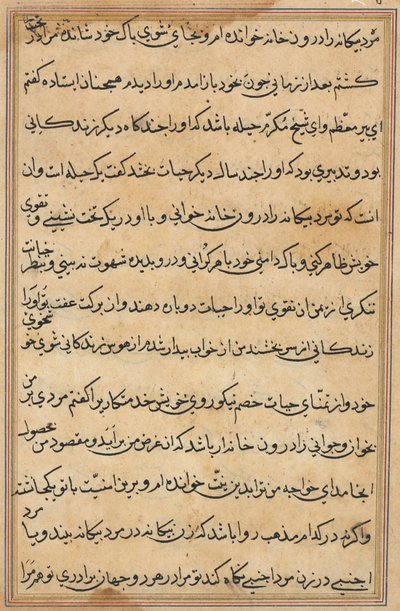 مرد بیکانه را درون خانه خوانده ام و بجای شوی پاک خود شانده مرا در
کشتم بعد از زمانی چون بخود باز آمدم او را دیدم همچنان ایستاده کفتم
ای پیر معظم و ای شیخ مکرم حیله باشد که او را چند کاه دیکر زندکانی
بود و تدبیری بود که او را چند ساله دیکر حیات بخشد کفت یک حیله است و آن
انست که تو مرد بیکانه را درون خانه خوانی و با او در یک تخت نشینی و تقوی
خویش ظاهر کنی و پاک دامنی خود باهر کرانی و در و بدیده شهوت نه بینی و بنظر خیانت
ننکری از یمن ان تقوی تو او را حیات دوباره دهند و از برکت عفت تو او را
زندکانی از سر بخشند من از خواب بیدار شدم از هوس زندکانی شوی خو
خود و از تمنای حیات خصم نیکوروی خویش خدمتکار را کفتم مردی بر من
بخوان و جوانی را درون خانه ار باشد که ان غرض من براید و مقصود من بحصول
انجامد ای خواجه من ترا بدین نیت خوانده ام و برین امنیت با تو یکجا شسته
و اکرنه در کدام مذهب روا باشد که زن بیکانه در مرد بیکانه بیند و یا مرد
اجنبی در زن مرد اجنبی نکاه کند تو مرا در هر دو جهان برادری تو هم مرا